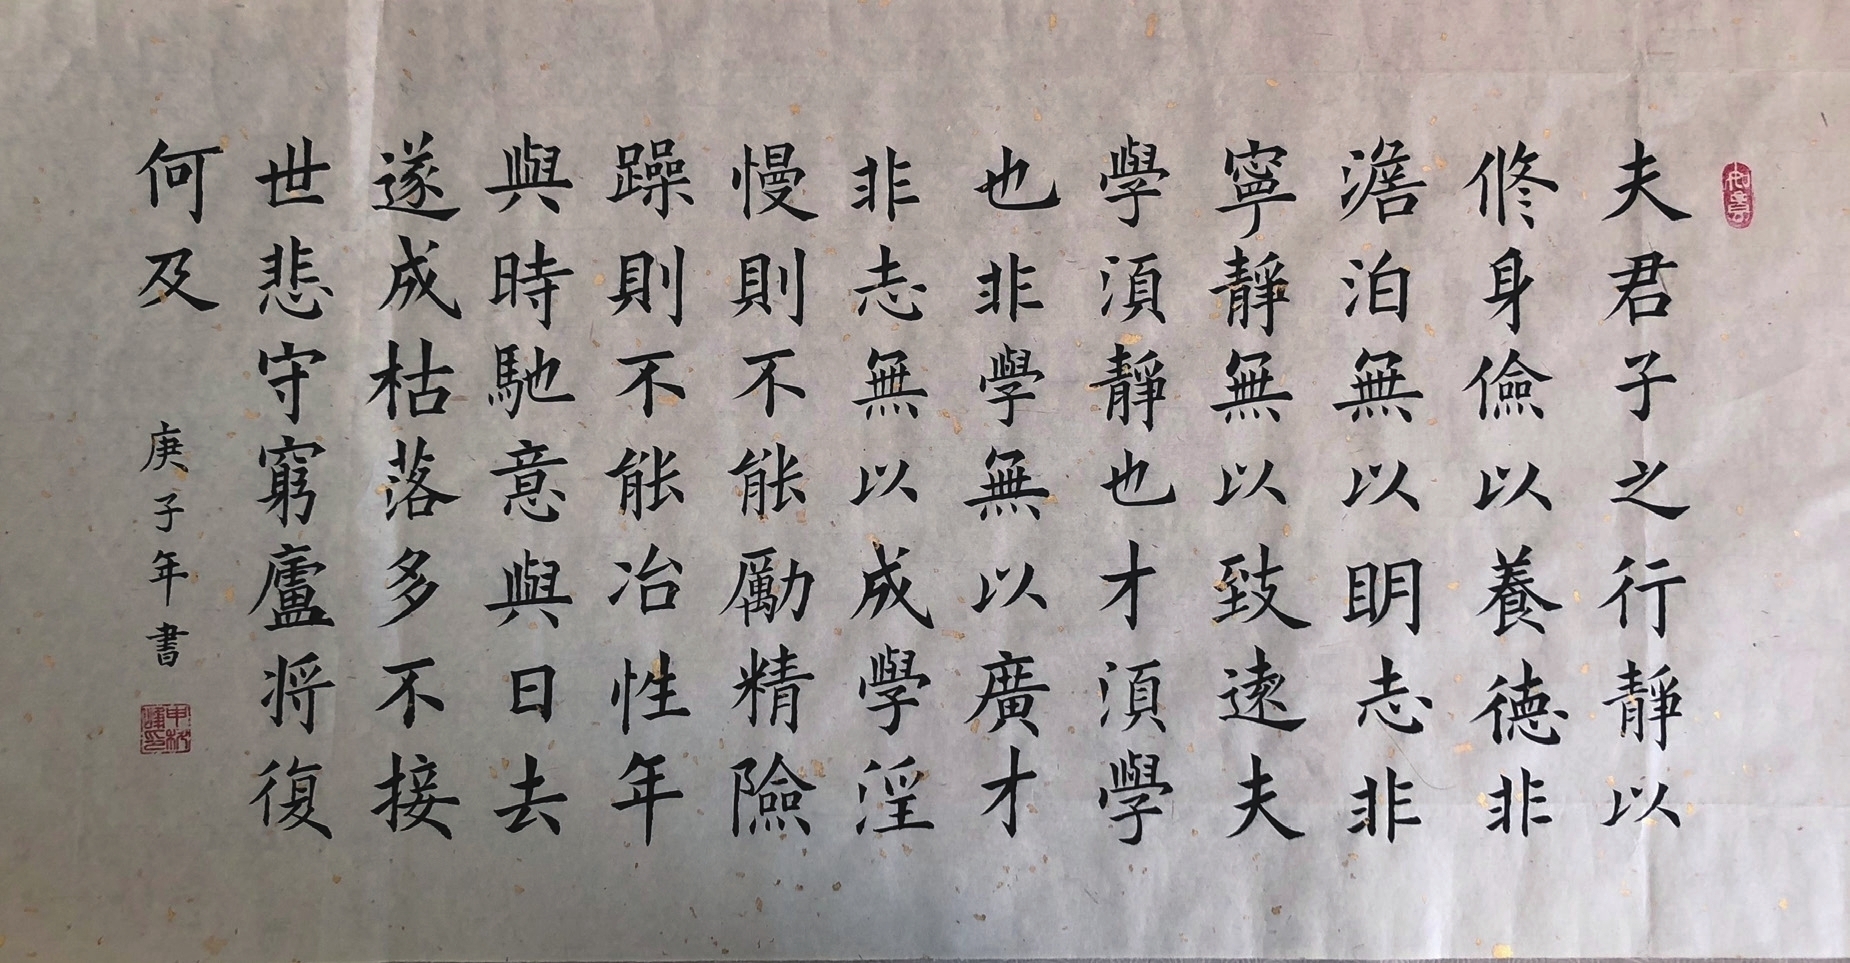 夫君子之行靜以
修身儉以養德非
澹泊無以明志非
寧靜無以致遠夫
學須靜也才須學
也非學無以廣才
非志無以成學淫
慢則不能勵精險
躁則不能冶性年
與時馳意與日去
遂成枯落多不接
世悲守窮廬將復
何及
庚子年書